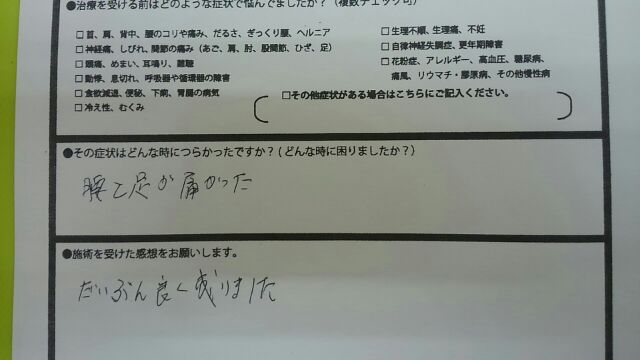 ●治療を受ける前はどのような症状で悩んでましたか？（複数チェック可）
□首、肩、背中、腰のコリや痛み、だるさ、ぎっくり腰、ヘルニア
□神経痛、しびれ、関節の痛み（あご、肩、肘、股関節、ひざ、足）
□頭痛、めまい、耳鳴り、難聴
□動悸、息切れ、呼吸器や循環器の障害
□食欲減退、便秘、下痢、胃腸の病気
□冷え性、むくみ
□生理不順、生理痛、不妊
□自律神経失調症、更年期障害
□花粉症、アレルギー、高血圧、糖尿病、
痛風、リウマチ・膠原病、その他慢性病
□その他症状がある場合はこちらにご記入ください。
●その症状はどんな時につらかったですか？(どんな時に困りましたか？)
腰と足が痛かった
●施術を受けた感想をお願いします。
だいぶん良く成りました